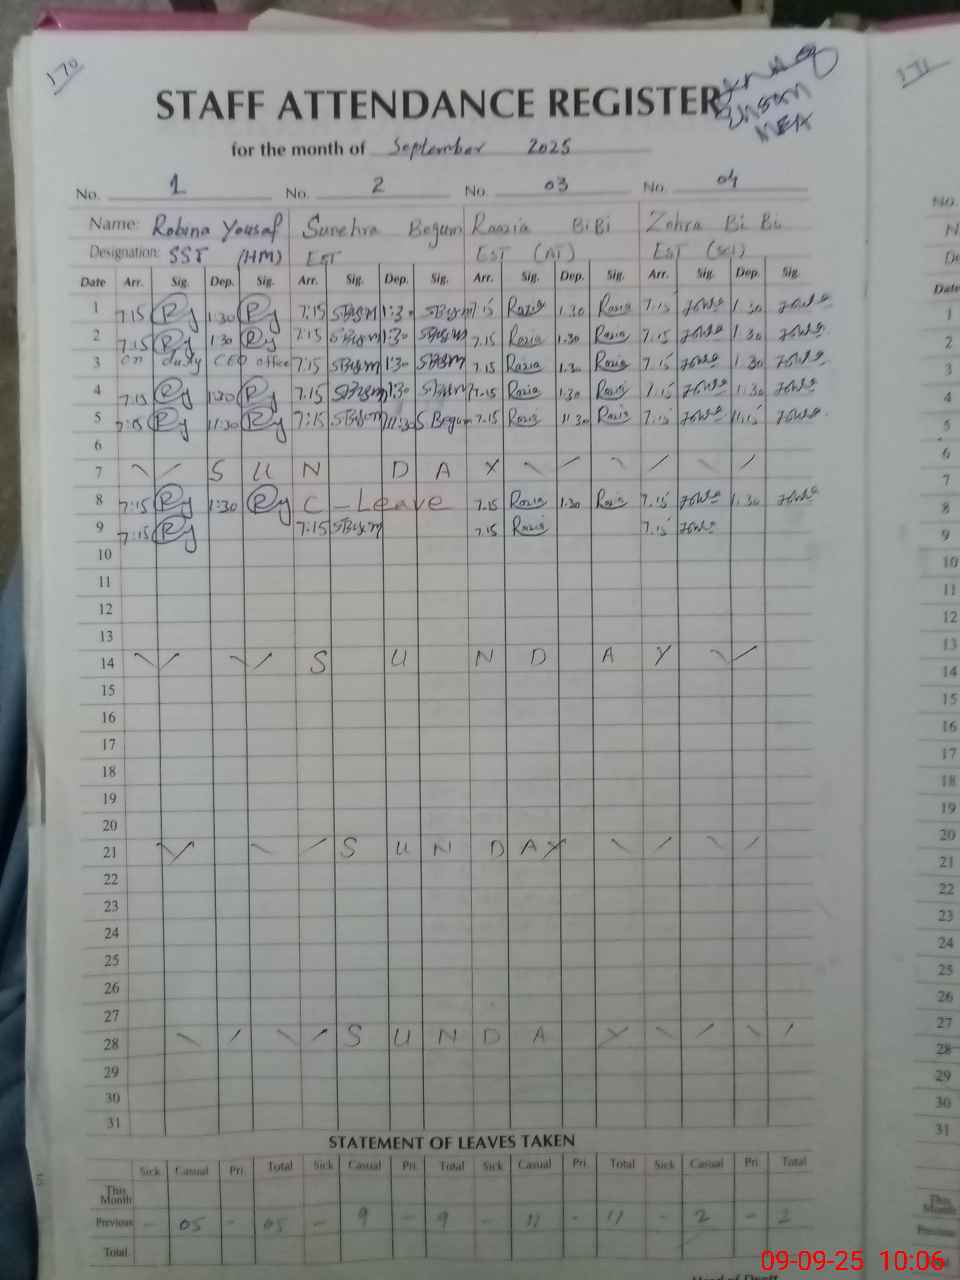 170
STAFF ATTENDANCE REGISTER
for the month of September 2025
No. 1 No. 2 No. 03 No. 04
Name: Robina Yousaf Sunehra Begum Raazia BiBi Zohra Bi Bi
Designation: SST (HM) EST EST (AT) EST (SCI)
Date Arr. Sig. Dep. Sig. Arr. Sig. Dep. Sig. Arr. Sig. Dep. Sig. Arr. Sig. Dep. Sig.
1 7:15 Ry 1:30 Ry 7:15 SBegum 1:30 SBegum 7.15 Razia 1.30 Razia 7.15 1.30
2 7:15 Ry 1:30 Ry 7:15 SBegum 1:30 SBegum 7.15 Razia 1.30 Razia 7.15 1.30
3 on duty CEO office 7:15 SBegum 1:30 SBegum 7.15 Razia 1.30 Razia 7.15 1.30
4 7:15 Ry 1:30 Ry 7:15 SBegum 1:30 SBegum 7.15 Razia 1.30 Razia 7.15 1.30
5 7:15 Ry 11:30 Ry 7:15 SBegum 11:30 S Begum 7.15 Razia 11.30 Razia 7.15 11.15
6
7 S U N D A Y
8 7:15 Ry 1:30 Ry C - Leave 7.15 Razia 1.30 Razia 7.15 1.30
9 7:15 Ry 7:15 SBegum 7.15 Razia 7.15
10
11
12
13
14 S U N D A Y
15
16
17
18
19
20
21 S U N D A Y
22
23
24
25
26
27
28 S U N D A Y
29
30
31
STATEMENT OF LEAVES TAKEN
Sick Casual Pri. Total Sick Casual Pri. Total Sick Casual Pri. Total Sick Casual Pri. Total
This Month
Previous - 05 - 05 - 9 - 9 - 11 - 11 - 2 - 2
Total
09-09-25 10:06
171
No.
Date
1
2
3
4
5
6
7
8
9
10
11
12
13
14
15
16
17
18
19
20
21
22
23
24
25
26
27
28
29
30
31
This Month
Previous